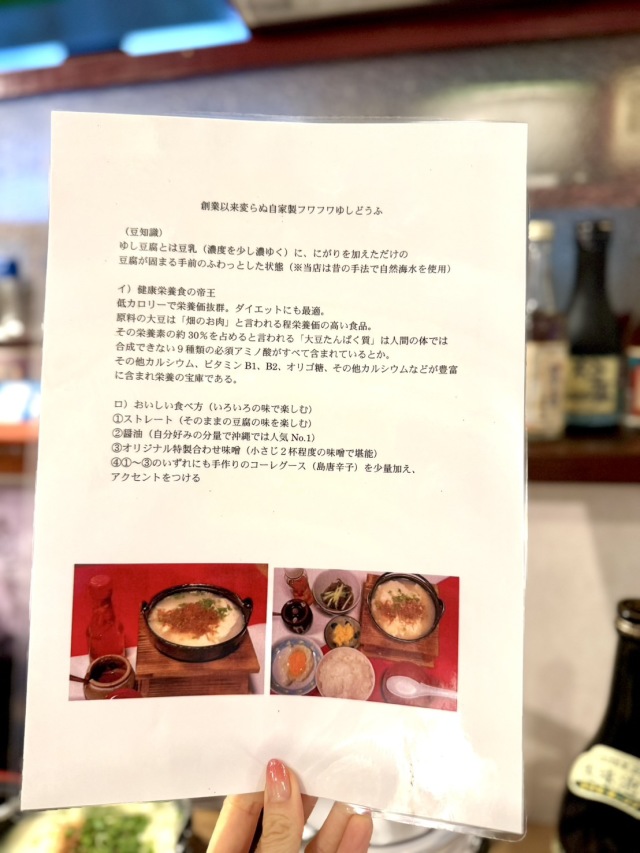 創業以来変らぬ自家製フワフワゆしどうふ
（豆知識）
ゆし豆腐とは豆乳（濃度を少し濃ゆく）に、にがりを加えただけの
豆腐が固まる手前のふわっとした状態（※当店は昔の手法で自然海水を使用）
イ）健康栄養食の帝王
低カロリーで栄養価抜群。ダイエットにも最適。
原料の大豆は「畑のお肉」と言われる程栄養価の高い食品。
その栄養素の約30％を占めると言われる「大豆たんぱく質」は人間の体では
合成できない９種類の必須アミノ酸がすべて含まれているとか。
その他カルシウム、ビタミンB1、B2、オリゴ糖、その他カルシウムなどが豊富
に含まれ栄養の宝庫である。
ロ）おいしい食べ方（いろいろの味で楽しむ）
①ストレート（そのままの豆腐の味を楽しむ）
②醤油（自分好みの分量で沖縄では人気No.1）
③オリジナル特製合わせ味噌（小さじ２杯程度の味噌で堪能）
④①～③のいずれにも手作りのコーレグース（島唐辛子）を少量加え、
アクセントをつける